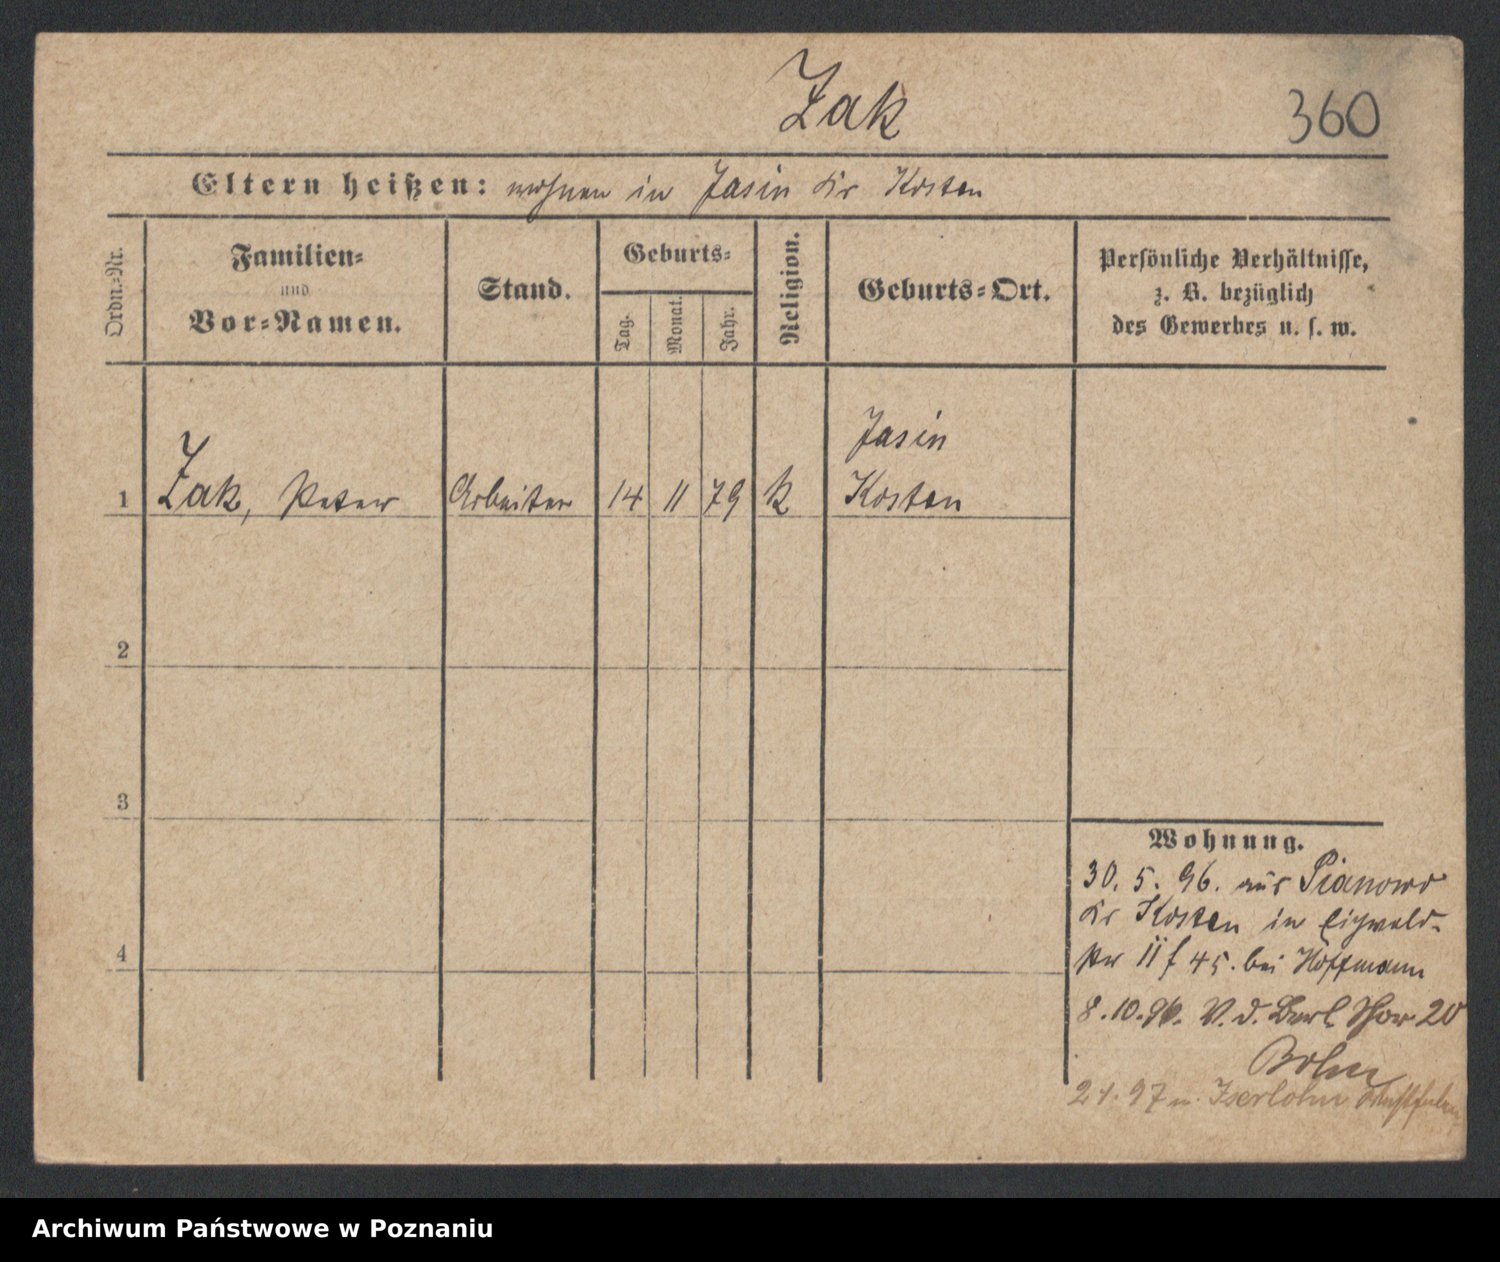 Zak
360
Eltern heißen: wohnen in Jasin Kr Kosten
Ordn.-Nr.
Familien-
und
Vor-Namen.
Stand.
Geburts-
Tag.
Monat.
Jahr.
Religion.
Geburts-Ort.
Persönliche Verhältnisse,
z. B. bezüglich
des Gewerbes u. s. w.
Jasin
1 Zak, Peter Arbeiter 14 11 79 k Kosten
2
3
4
Wohnung.
30. 5. 96. aus Pianowo
Kr Kosten in Eichwald-
45. bei Hoffmann
8.10.96. V. d. Berl Thor 20
97 n. Iserlohn
Archiwum Państwowe w Poznaniu